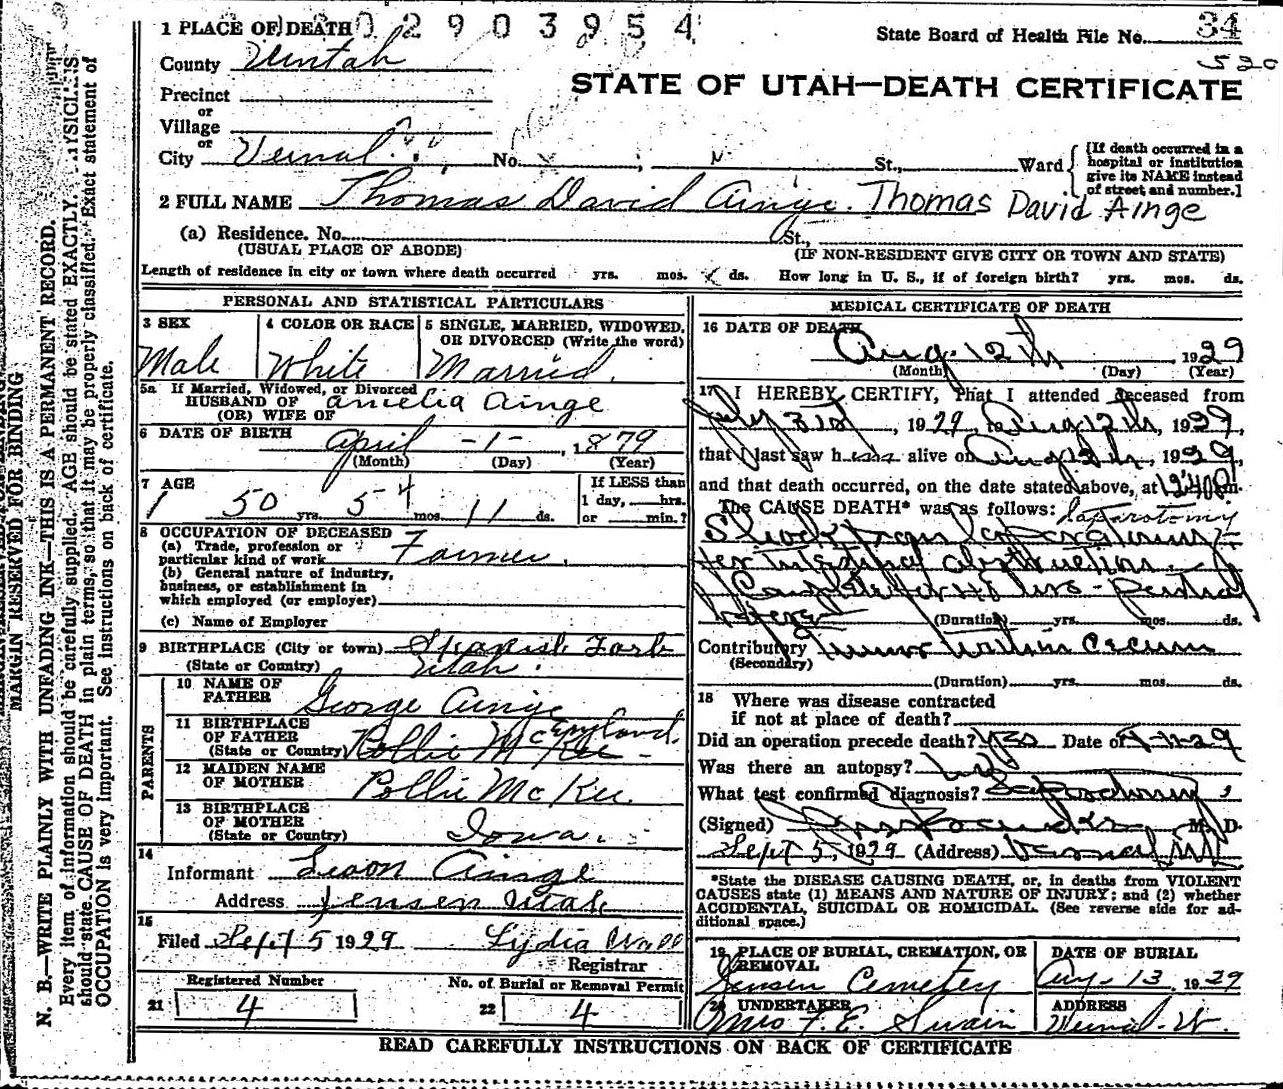 1 PLACE OF DEATH 0 2 9 0 3 9 5 4
State Board of Health File No. 34
520
County Uintah
STATE OF UTAH—DEATH CERTIFICATE
Precinct
or
Village
or
City Vernal No. St., Ward
[If death occurred in a
hospital or institution
give its NAME instead
of street and number.]
2 FULL NAME Thomas David Ainge. Thomas David Ainge
(a) Residence. No. St.,
(USUAL PLACE OF ABODE) (IF NON-RESIDENT GIVE CITY OR TOWN AND STATE)
Length of residence in city or town where death occurred yrs. mos. ds. How long in U. S., if of foreign birth? yrs. mos. ds.
PERSONAL AND STATISTICAL PARTICULARS
3 SEX 4 COLOR OR RACE 5 SINGLE, MARRIED, WIDOWED,
OR DIVORCED (Write the word)
Male White Married.
5a If Married, Widowed, or Divorced
HUSBAND OF Amelia Ainge
(OR) WIFE OF
6 DATE OF BIRTH April -1-, 1879
(Month) (Day) (Year)
7 AGE If LESS than
1 day, hrs.
50 yrs. 5 4 mos. 11 ds. or min.?
8 OCCUPATION OF DECEASED
(a) Trade, profession or
particular kind of work Farmer.
(b) General nature of industry,
business, or establishment in
which employed (or employer)
(c) Name of Employer
9 BIRTHPLACE (City or town) Spanish Fork
(State or Country) Utah.
PARENTS
10 NAME OF
FATHER George Ainge
11 BIRTHPLACE
OF FATHER England.
(State or Country) Pollie McKee
12 MAIDEN NAME
OF MOTHER Pollie McKee.
13 BIRTHPLACE
OF MOTHER
(State or Country) Iowa.
14
Informant Leon Ainge
Address Jensen Utah
15
Filed Sept 5 1929 Lydia
Registrar
Registered Number No. of Burial or Removal Permit
21 4 22 4
MEDICAL CERTIFICATE OF DEATH
16 DATE OF DEATH
Aug. 12th 1929
(Month) (Day) (Year)
17 I HEREBY CERTIFY, That I attended deceased from
July 31st, 1929, Aug 12th, 1929,
that I last saw h alive on Aug 12th, 1929,
and that death occurred, on the date stated above, at 12:40 P m.
The CAUSE DEATH* was as follows: laparotomy
Shock from
for intestinal obstruction
(Duration) yrs. mos. ds.
Contributory Cecum
(Secondary)
(Duration) yrs. mos. ds.
18 Where was disease contracted
if not at place of death?
Did an operation precede death? yes Date of
Was there an autopsy?
What test confirmed diagnosis?
(Signed) M. D.
Sept 5, 1929 (Address) Vernal Ut
*State the DISEASE CAUSING DEATH, or, in deaths from VIOLENT
CAUSES state (1) MEANS AND NATURE OF INJURY; and (2) whether
ACCIDENTAL, SUICIDAL OR HOMICIDAL. (See reverse side for ad-
ditional space.)
19 PLACE OF BURIAL, CREMATION, OR
REMOVAL DATE OF BURIAL
Jensen Cemetery Aug. 13, 1929
20 UNDERTAKER ADDRESS
Mrs F. E. Swain Vernal-Ut.
READ CAREFULLY INSTRUCTIONS ON BACK OF CERTIFICATE
MARGIN RESERVED FOR BINDING
N. B.—WRITE PLAINLY WITH UNFADING INK—THIS IS A PERMANENT RECORD.
Every item of information should be carefully supplied. AGE should be stated EXACTLY. PHYSICIANS
should state CAUSE OF DEATH in plain terms, so that it may be properly classified. Exact statement of
OCCUPATION is very important. See instructions on back of certificate.